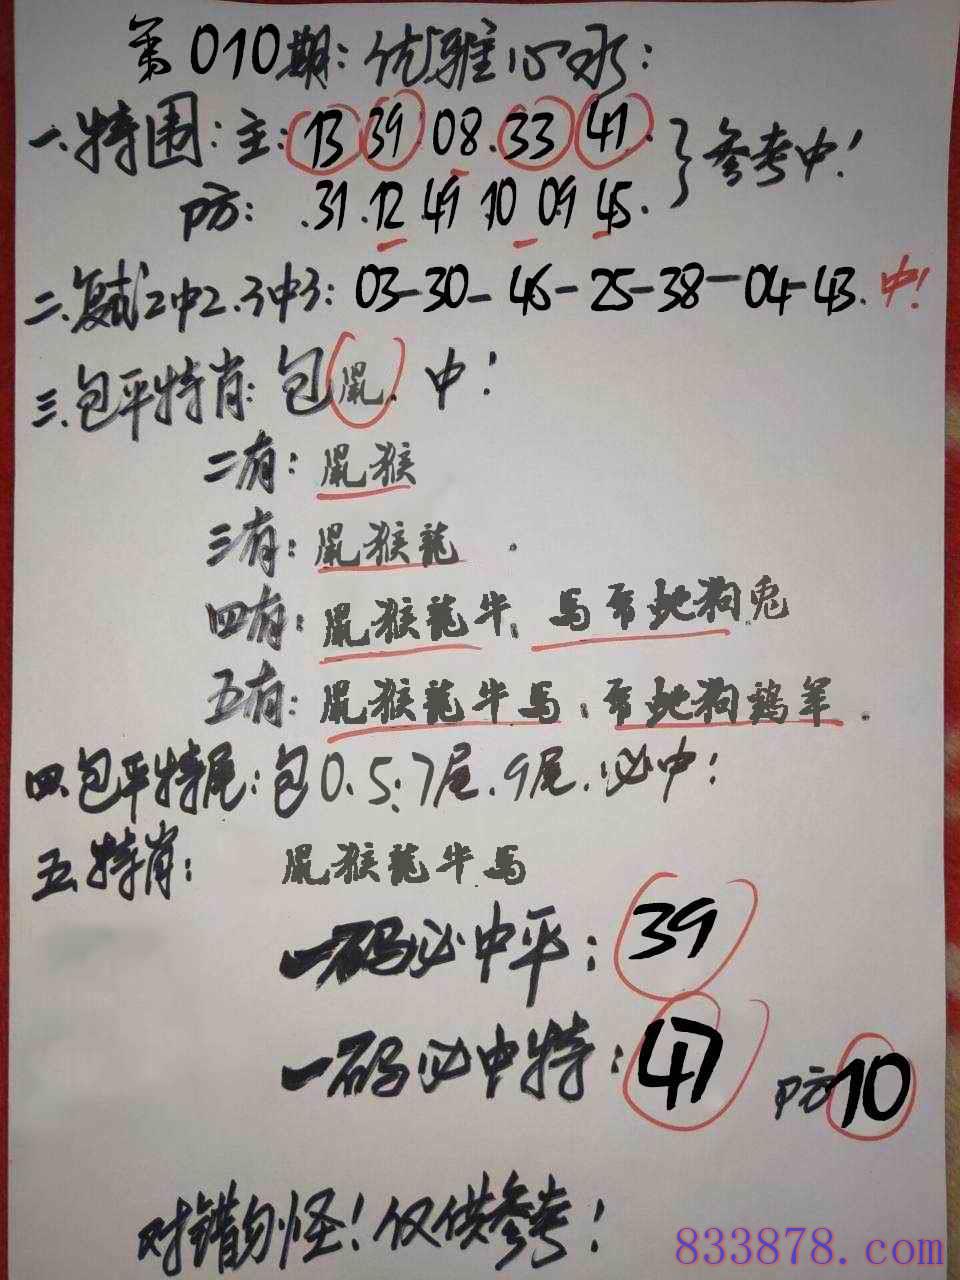 第010期:优雅心水:
一.特围:主:13 39 08.33 47.}参考中!
防:.31.12 49 10 09 45.
二.复式2中2.3中3:03-30-46-25-38-04-43.中!
三.包平特肖:包鼠.中!
二有:鼠猴
三有:鼠猴龍.
四有:鼠猴龍牛;馬 蛇狗兔
五有:鼠猴龍牛馬; 蛇狗鷄羊.
四.包平特尾:包0.5:7尾.9尾.必中!
五.特肖:鼠猴龍牛馬
一码必中平:39
一码必中特:47 防10
对错勿怪!仅供参考!
833878.com